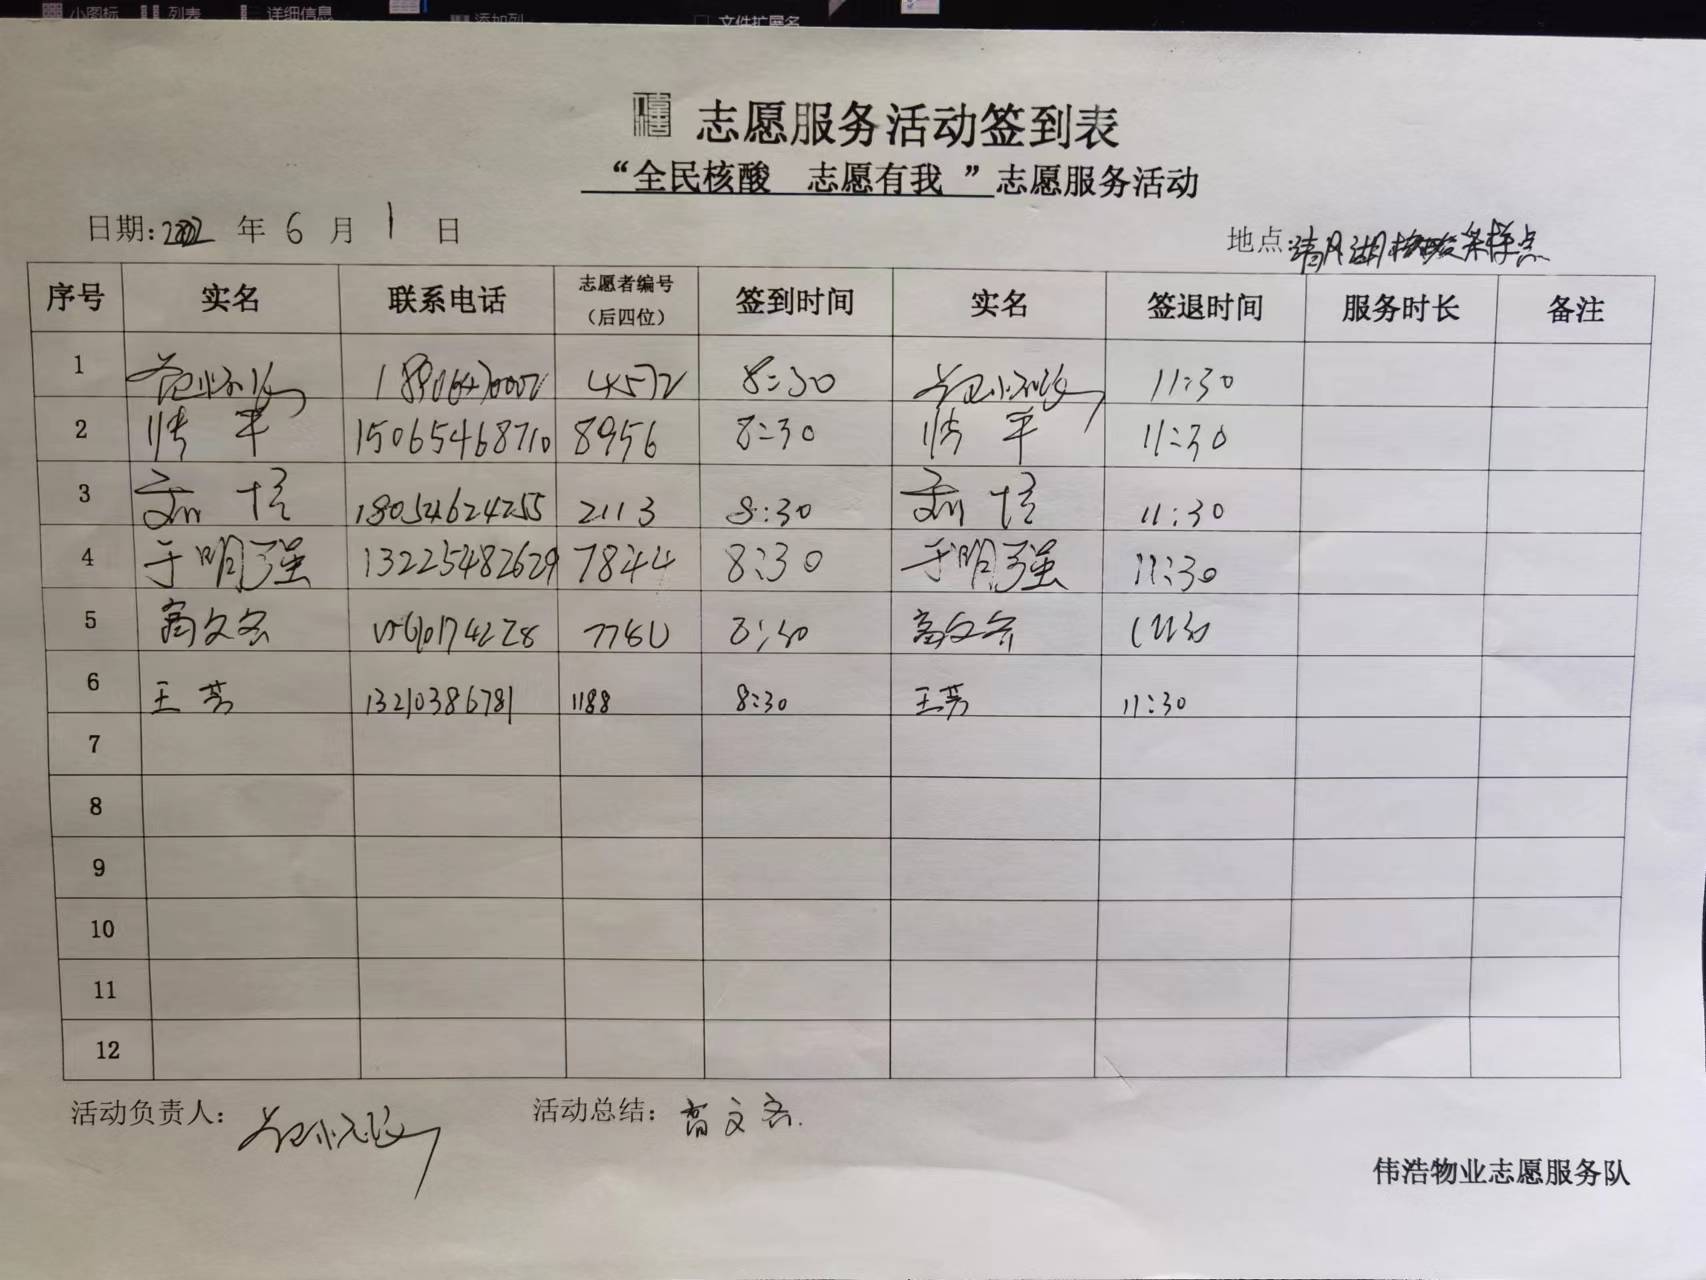 小图标 列表 详细信息 添加列 文件扩展名
志愿服务活动签到表
“全民核酸 志愿有我 ”志愿服务活动
日期: 2022 年 6 月 1 日 地点:清风湖核酸采样点
序号 实名 联系电话 志愿者编号（后四位） 签到时间 实名 签退时间 服务时长 备注
1 4572 8:30 11:30
2 15065468710 8956 8:30 11:30
3 18054624255 2113 8:30 11:30
4 于明强 13225482629 7844 8:30 于明强 11:30
5 高文 15610174228 7780 8:30 高文 11:30
6 王芳 13210386781 1188 8:30 王芳 11:30
7
8
9
10
11
12
活动负责人: 活动总结: 高文
伟浩物业志愿服务队